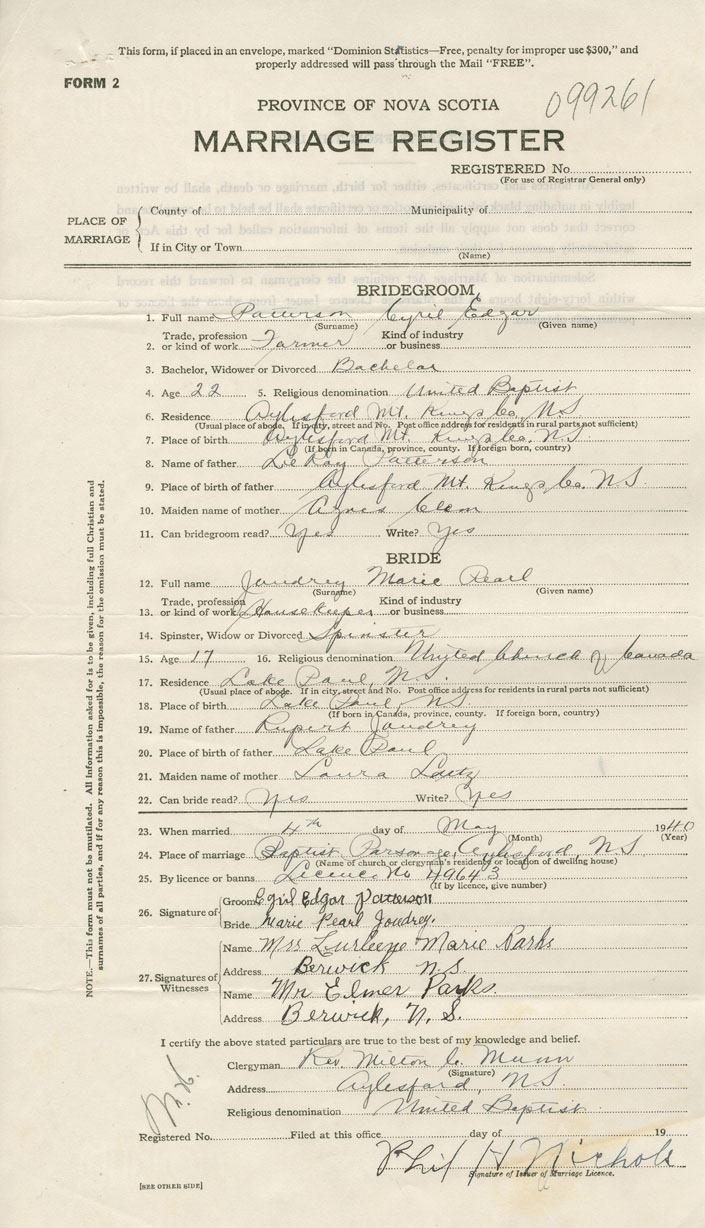 This form, if placed in an envelope, marked "Dominion Statistics—Free, penalty for improper use $300," and
properly addressed will pass through the Mail "FREE".
FORM 2
099261
PROVINCE OF NOVA SCOTIA
MARRIAGE REGISTER
REGISTERED No.
(For use of Registrar General only)
PLACE OF MARRIAGE
County of Municipality of
If in City or Town
(Name)
BRIDEGROOM
1. Full name Patterson Cyril Edgar
(Surname) (Given name)
2. Trade, profession or kind of work Farmer Kind of industry or business
3. Bachelor, Widower or Divorced Bachelor
4. Age 22 5. Religious denomination United Baptist
6. Residence Aylesford Mt. Kings Co. N.S.
(Usual place of abode. If in city, street and No. Post office address for residents in rural parts not sufficient)
7. Place of birth Aylesford Mt. Kings Co. N.S.
(If born in Canada, province, county. If foreign born, country)
8. Name of father LeRoy Patterson
9. Place of birth of father Aylesford Mt. Kings Co. N.S.
10. Maiden name of mother Agnes Clem
11. Can bridegroom read? Yes Write? Yes
BRIDE
12. Full name Joudrey Marie Pearl
(Surname) (Given name)
13. Trade, profession or kind of work Housekeeper Kind of industry or business
14. Spinster, Widow or Divorced Spinster
15. Age 17 16. Religious denomination United Church of Canada
17. Residence Lake Paul, N.S.
(Usual place of abode. If in city, street and No. Post office address for residents in rural parts not sufficient)
18. Place of birth Lake Paul, N.S.
(If born in Canada, province, county. If foreign born, country)
19. Name of father Rupert Joudrey
20. Place of birth of father Lake Paul
21. Maiden name of mother Laura Lutz
22. Can bride read? Yes Write? Yes
23. When married 4th day of May 1940
(Month) (Year)
24. Place of marriage Baptist Parsonage, Aylesford, N.S.
(Name of church or clergyman's residence or location of dwelling house)
25. By licence or banns Licence No 49643
(If by licence, give number)
26. Signature of
Groom Cyril Edgar Patterson
Bride Marie Pearl Joudrey.
27. Signatures of Witnesses
Name Mrs Lurleene Marie Parks
Address Berwick N.S.
Name Mr Elmer Parks.
Address Berwick, N.S.
I certify the above stated particulars are true to the best of my knowledge and belief.
Clergyman Rev. Milton C. Munn
(Signature)
Address Aylesford, N.S.
Religious denomination United Baptist
Registered No. Filed at this office day of 19
Phil H Nichols
Signature of Issuer of Marriage Licence.
[SEE OTHER SIDE]
NOTE.—This form must not be mutilated. All information asked for is to be given, including full Christian and
surnames of all parties, and if for any reason this is impossible, the reason for the omission must be stated.